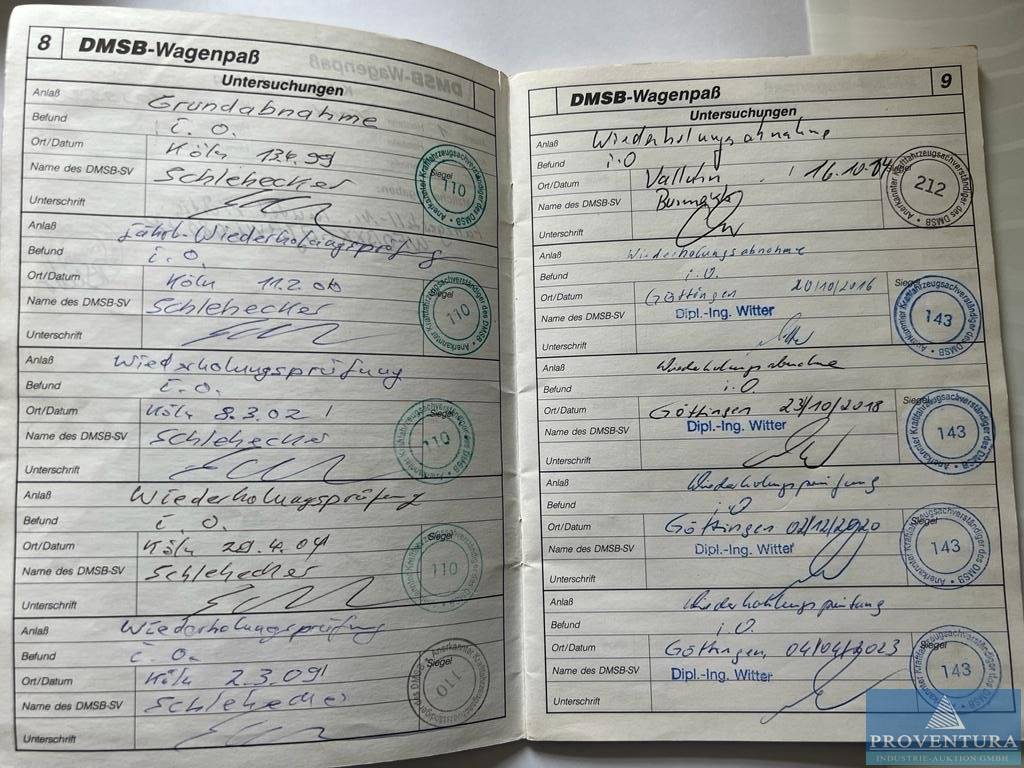 8 DMSB-Wagenpaß
Untersuchungen
Anlaß Grundabnahme
Befund i. O.
Ort/Datum Köln 13.4.99
Name des DMSB-SV Schlehecker
Siegel 110
Unterschrift
Anlaß jährl. Wiederholungsprüfung
Befund i. O.
Ort/Datum Köln 11.2.00
Name des DMSB-SV Schlehecker
Siegel 110 Anerkannter Kraftfahrzeugsachverständiger des DMSB
Unterschrift
Anlaß Wiederholungsprüfung
Befund i. O.
Ort/Datum Köln 8.3.02
Name des DMSB-SV Schlehecker
Siegel 110
Unterschrift
Anlaß Wiederholungsprüfung
Befund i. O.
Ort/Datum Köln 29.4.04
Name des DMSB-SV Schlehecker
Siegel 110
Unterschrift
Anlaß Wiederholungsprüfung
Befund i. O.
Ort/Datum Köln 2.3.09
Name des DMSB-SV Schlehecker
Siegel 110
Unterschrift
DMSB-Wagenpaß 9
Untersuchungen
Anlaß Wiederholungsabnahme
Befund i.O
Ort/Datum Valluhn 16.10.
Name des DMSB-SV
Siegel 212 Anerkannter Kraftfahrzeugsachverständiger des DMSB
Unterschrift
Anlaß Wiederholungsabnahme
Befund i.O.
Ort/Datum Göttingen 20/10/2016
Name des DMSB-SV Dipl.-Ing. Witter
Siegel 143 Anerkannter Kraftfahrzeugsachverständiger des DMSB
Unterschrift
Anlaß Wiederholungsabnahme
Befund i.O
Ort/Datum Göttingen 23/10/2018
Name des DMSB-SV Dipl.-Ing. Witter
Siegel 143 Anerkannter Kraftfahrzeugsachverständiger des DMSB
Unterschrift
Anlaß Wiederholungsprüfung
Befund i.O
Ort/Datum Göttingen 02/12/2020
Name des DMSB-SV Dipl.-Ing. Witter
Siegel 143 Anerkannter Kraftfahrzeugsachverständiger des DMSB
Unterschrift
Anlaß Wiederholungsprüfung
Befund i.O.
Ort/Datum Göttingen 04/04/2023
Name des DMSB-SV Dipl.-Ing. Witter
Siegel 143
Unterschrift
PROVENTURA
INDUSTRIE-AUKTION GMBH